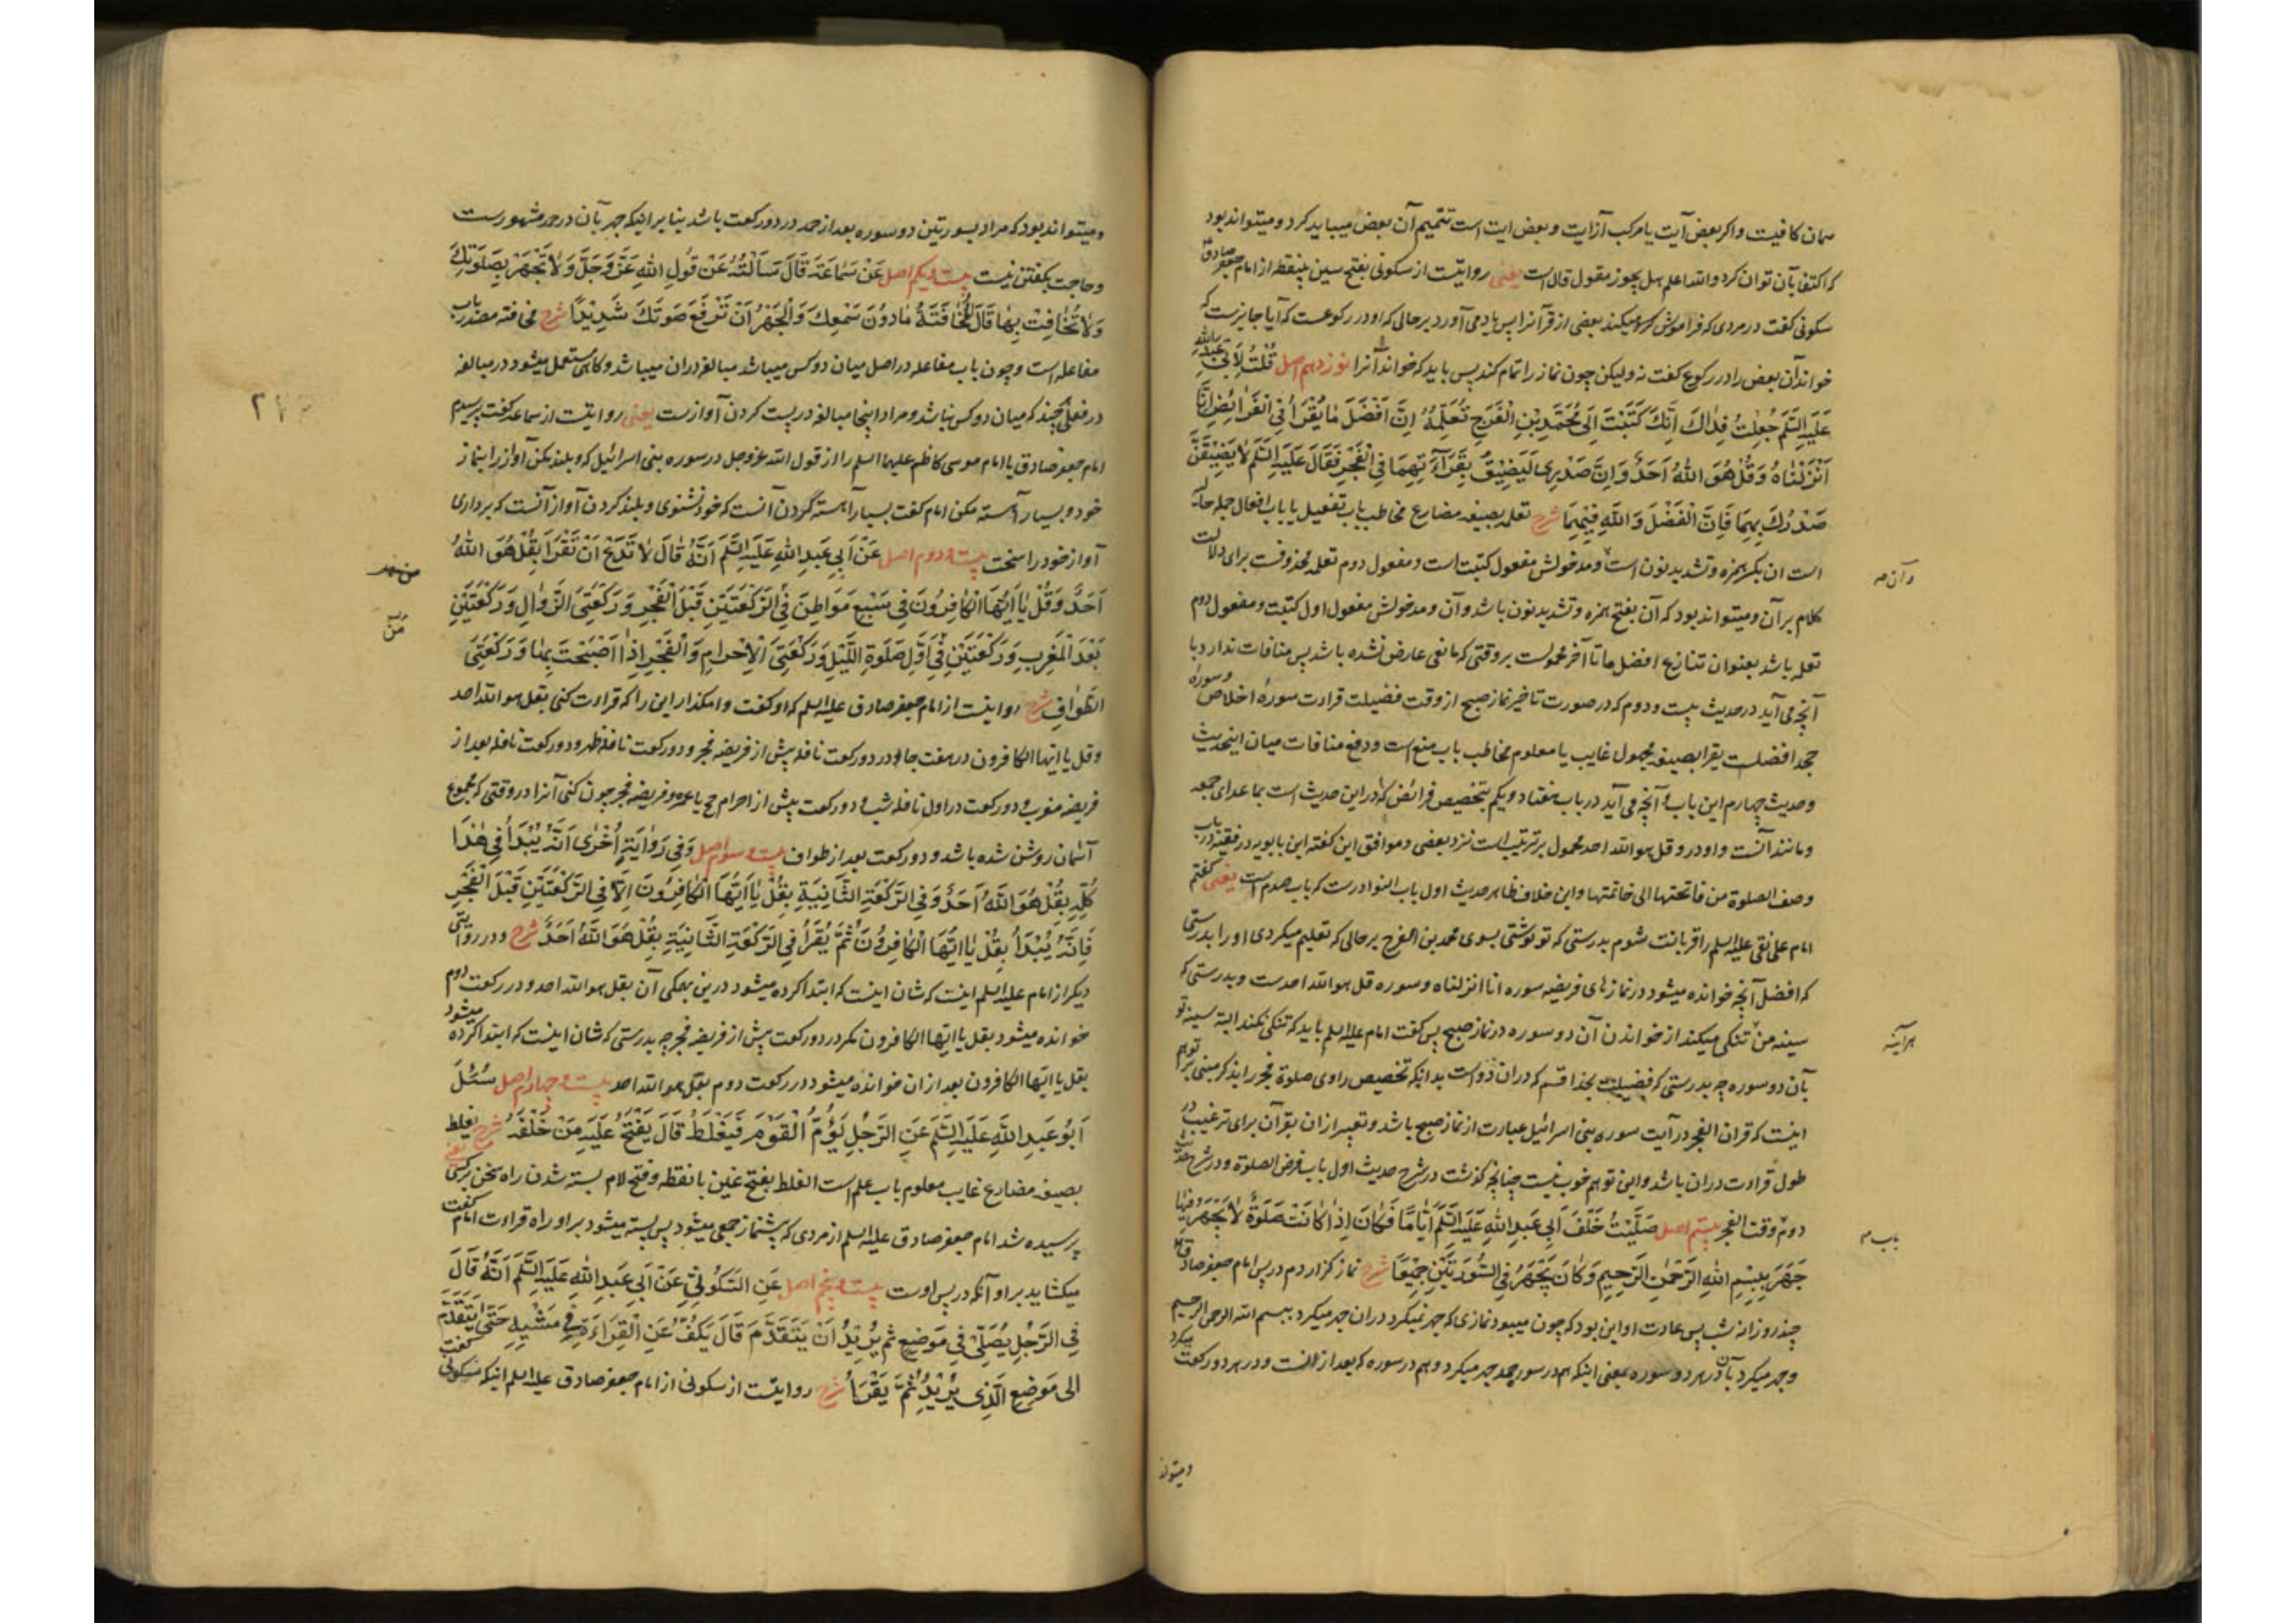 همان کافیست و اکر بعض آیت یا مرکب از آیت و بعض ایت است تتمیم آن بعض میباید کرد و میتواند بود
که اکتفا بآن توان کرد و الله اعلم هل یجوز مقول قال است یعنی روایتست از سکونی بفتح سین بینقطه از امام جعفر صادق
سکونی کفت در مردی که فراموش میکند بعضی از قرآن را پس یاد می آورد بر حالی که او در رکوعست که آیا جایزست که
خواند آن بعض را در رکوع کفت نه ولیکن چون نماز را تمام کند پس باید که خواند آنرا نوزدهم اصل قُلْتُ لِاَبی عَبْدِ اللّٰهِ
عَلَیْهِ السَّلَم جُعِلْتُ فِدٰاكَ اَنَّكَ كَتَبْتَ اِلَى مُحَمَّدِ بْنِ الْفَرَجِ تُعَلِّمُهُ اِنَّ اَفْضَلَ مٰا يُقْرَأُ فِي الْفَرٰائِضِ اِنّٰا
اَنْزَلْنٰاهُ وَ قُلْ هُوَ اللّٰهُ اَحَدٌ وَ اِنَّ صَدْرِي لَيَضِيْقُ بِقِرٰآءَتِهِمَا فِي الْفَجْرِ فَقٰالَ عَلَيْهِ السَّلَم لٰا يَضِيْقَنَّ
صَدْرُكَ بِهِمٰا فَاِنَّ الْفَضْلَ وَ اللّٰهِ فِيْهِمٰا شرح تعلمه بصیغه مضارع مخاطب باب تفعیل یا باب افعال جمله حالیه
است ان بکسر همزه و تشدید نون است و مدخولش مفعول کتبت است و مفعول دوم تعلمه محذوفست برای دلالت
وآن صه
کلام بر آن و میتواند بود که آن بفتح همزه و تشدید نون باشد و آن و مدخولش مفعول اول کتبت و مفعول دوم
تعلمه باشد بعنوان تنازع افضل ما تا آخر محمولست بر وقتی که مانعی عارض نشده باشد پس منافات ندارد با
آنچه می آید در حدیث بیست و دوم که در صورت تاخیر نماز صبح از وقت فضیلت قراءت سورهٔ اخلاص و سورهٔ
جحد افضلست یقرا بصیغه مجهول غایب یا معلوم مخاطب باب منع است و دفع منافات میان اینحدیث
و حدیث چهارم این باب و آنچه می آید در باب هفتاد و یکم بتخصیص فرائض که در این حدیث است بما عدای جمعه
و مانند آنست و او در و قل هو الله احد محمول بر ترتیب است نزد بعضی و موافق این کفته ابن بابویه در فقیه در باب
وصف الصلوة من فاتحتها الی خاتمتها و این خلاف ظاهر حدیث اول باب النوادرست که باب صدم است یعنی کفتم
امام علی نقی علیه السلم را قربانت شوم بدرستی که تو نوشتی بسوی محمد بن الفرج بر حالی که تعلیم میکردی او را بدرستی
که افضل آنچه خوانده میشود در نماز های فریضه سوره انا انزلناه و سوره قل هو الله احدست و بدرستی که
سینه من تنکی میکند از خواندن آن دو سوره در نماز صبح پس کفت امام علیه السلم باید که تنکی نکند البته سینه تو
هرآینه
بآن دو سوره چه بدرستی که فضیلت بخدا قسم که در ان دو است بدانکه تخصیص راوی صلوة فجر را بذکر مبنی بر توهم
اینست که قران الفجر در آیت سوره بنی اسرائیل عبارت از نماز صبح باشد و تعبیر از ان بقرآن برای ترغیب در
طول قراءت در ان باشد و این توهم خوب نیست چنانچه کذشت در شرح حدیث اول باب فرض الصلوة و در شرح حدیث
دوم وقت الفجر بیستم اصل صَلَّيْتُ خَلْفَ اَبِي عَبْدِ اللّٰهِ عَلَيْهِ السَّلَم اَيّٰامًا فَكٰانَ اِذٰا كٰانَتْ صَلٰوةٌ لٰا يُجْهَرُ فِيْهٰا
باب صه
جَهَرَ بِبِسْمِ اللّٰهِ الرَّحْمٰنِ الرَّحِيْمِ وَ كٰانَ يَجْهَرُ فِي السُّوْرَتَيْنِ جَمِيْعًا شرح نماز کزاردم در پس امام جعفر صادق
چند روز از شب پس عادت او این بود که چون میبود نمازی که جهر نمیکرد در ان جهر میکرد ببسم الله الرحمن الرحیم
و جهر میکرد بآن در هر دو سوره یعنی اینکه هم در سوره حمد جهر میکرد و هم در سوره که بعد از انست و در هر دو رکعت میکرد
ومیتواند
ومیتواند بود که مراد بسورتین دو سوره بعد از حمد در دو رکعت باشد بنا بر اینکه جهر بآن در حمد مشهورست
و حاجت بکفتن نیست بیست و یکم اصل عَنْ سَمٰاعَةَ قٰالَ سَأَلْتُهُ عَنْ قَوْلِ اللّٰهِ عَزَّ وَ جَلَّ وَ لٰا تَجْهَرْ بِصَلَوتِكَ
وَ لٰا تُخٰافِتْ بِهٰا قٰالَ الْمُخٰافَتَةُ مٰا دُوْنَ سَمْعِكَ وَ الْجَهْرُ اَنْ تَرْفَعَ صَوتَكَ شَدِيْدًا شرح مخافته مصدر باب
مفاعله است و چون باب مفاعله در اصل میان دو کس میباشد مبالغه در ان میباشد و کاهی مستعمل میشود در مبالغه
در فعلی هر چند که میان دو کس نباشد و مراد اینجا مبالغه در پست کردن آوازست یعنی روایتست از سماعه کفت پرسیدم
امام جعفر صادق یا امام موسی کاظم علیهما السلم را از قول الله عز و جل در سوره بنی اسرائیل که و بلند مکن آواز را بنماز
خود و بسیار آهسته مکن امام کفت بسیار آهسته کردن آنست که خود نشنوی و بلند کردن آواز آنست که برداری
آواز خود را سخت بیست و دوم اصل عَنْ اَبِي عَبْدِ اللّٰهِ عَلَيْهِ السَّلَم اَنَّهُ قٰالَ لٰا تَدَعْ اَنْ تَقْرَأَ بِقُلْ هُوَ اللّٰهُ
اَحَدٌ وَ قُلْ يٰا اَيُّهَا الْكٰافِرُونَ فِي سَبْعِ مَوٰاطِنَ فِي الرَّكْعَتَيْنِ قَبْلَ الْفَجْرِ وَ رَكْعَتَيِ الزَّوٰالِ وَ رَكْعَتَيْنِ
بَعْدَ الْمَغْرِبِ وَ رَكْعَتَيْنِ فِي اَوَّلِ صَلٰوةِ اللَّيْلِ وَ رَكْعَتَيِ الْاِحْرٰامِ وَ الْفَجْرِ اِذٰا اَصْبَحْتَ بِهٰا وَ رَكْعَتَيِ
الطَّوٰافِ شرح روایتست از امام جعفر صادق علیه السلم که او کفت وا مکذار این را که قراءت کنی بقل هو الله احد
و قل یا ایها الکافرون در هفت جا در دو رکعت نافله پیش از فریضه فجر و دو رکعت نافله ظهر و دو رکعت نافله بعد از
فریضه مغرب و دو رکعت در اول نافله شب و دو رکعت پیش از احرام حج یا عمره و فریضه فجر چون کنی آنرا در وقتی که مجموع
آسمان روشن شده باشد و دو رکعت بعد از طواف بیست و سوم اصل وَ فِي رِوٰايَةٍ اُخْرٰى اَنَّهُ يُبْدَأُ فِي هٰذَا
كُلِّهِ بِقُلْ هُوَ اللّٰهُ اَحَدٌ وَ فِي الرَّكْعَةِ الثّٰانِيَةِ بِقُلْ يٰا اَيُّهَا الْكٰافِرُونَ اِلّٰا فِي الرَّكْعَتَيْنِ قَبْلَ الْفَجْرِ
فَاِنَّهُ يُبْدَأُ بِقُلْ يٰا اَيُّهَا الْكٰافِرُونَ ثُمَّ يُقْرَأُ فِي الرَّكْعَةِ الثّٰانِيَةِ بِقُلْ هُوَ اللّٰهُ اَحَدٌ شرح و در روایتی
دیکر از امام علیه السلم اینست که شان اینست که ابتدا کرده میشود درین همکی آن بقل هو الله احد و در رکعت دوم
خوانده میشود بقل یا ایها الکافرون مکر در دو رکعت پیش از فریضه فجر چه بدرستی که شان اینست که ابتدا کرده میشود
بقل یا ایها الکافرون بعد از ان خوانده میشود در رکعت دوم بقل هو الله احد بیست و چهارم اصل سُئِلَ
اَبُو عَبْدِ اللّٰهِ عَلَيْهِ السَّلَم عَنِ الرَّجُلِ يَؤُمُّ الْقَوْمَ فَيَغْلَطُ قٰالَ يَفْتَحُ عَلَيْهِ مَنْ خَلْفَهُ شرح یغلط
بصیغه مضارع غایب معلوم باب علم است الغلط بفتح غین با نقطه و فتح لام بسته شدن راه سخن بر کسی یعنی
پرسیده شد امام جعفر صادق علیه السلم از مردی که پیشنماز جمعی میشود پس بسته میشود بر او راه قراءت امام کفت
میکشاید بر او آنکه در پس اوست بیست و پنجم اصل عَنِ السَّكُونِيِّ عَنْ اَبِي عَبْدِ اللّٰهِ عَلَيْهِ السَّلَم اَنَّهُ قٰالَ
فِي الرَّجُلِ يُصَلِّي فِي مَوْضِعٍ ثُمَّ يُرِيْدُ اَنْ يَتَقَدَّمَ قٰالَ يَكُفُّ عَنِ الْقِرٰاءَةِ فِي مَشْيِهِ حَتّٰى يَتَقَدَّمَ
الى مَوْضِعِ الَّذِي يُرِيْدُ ثُمَّ يَقْرَأُ شرح روایتست از سکونی از امام جعفر صادق علیه السلم اینکه سکونی کفت